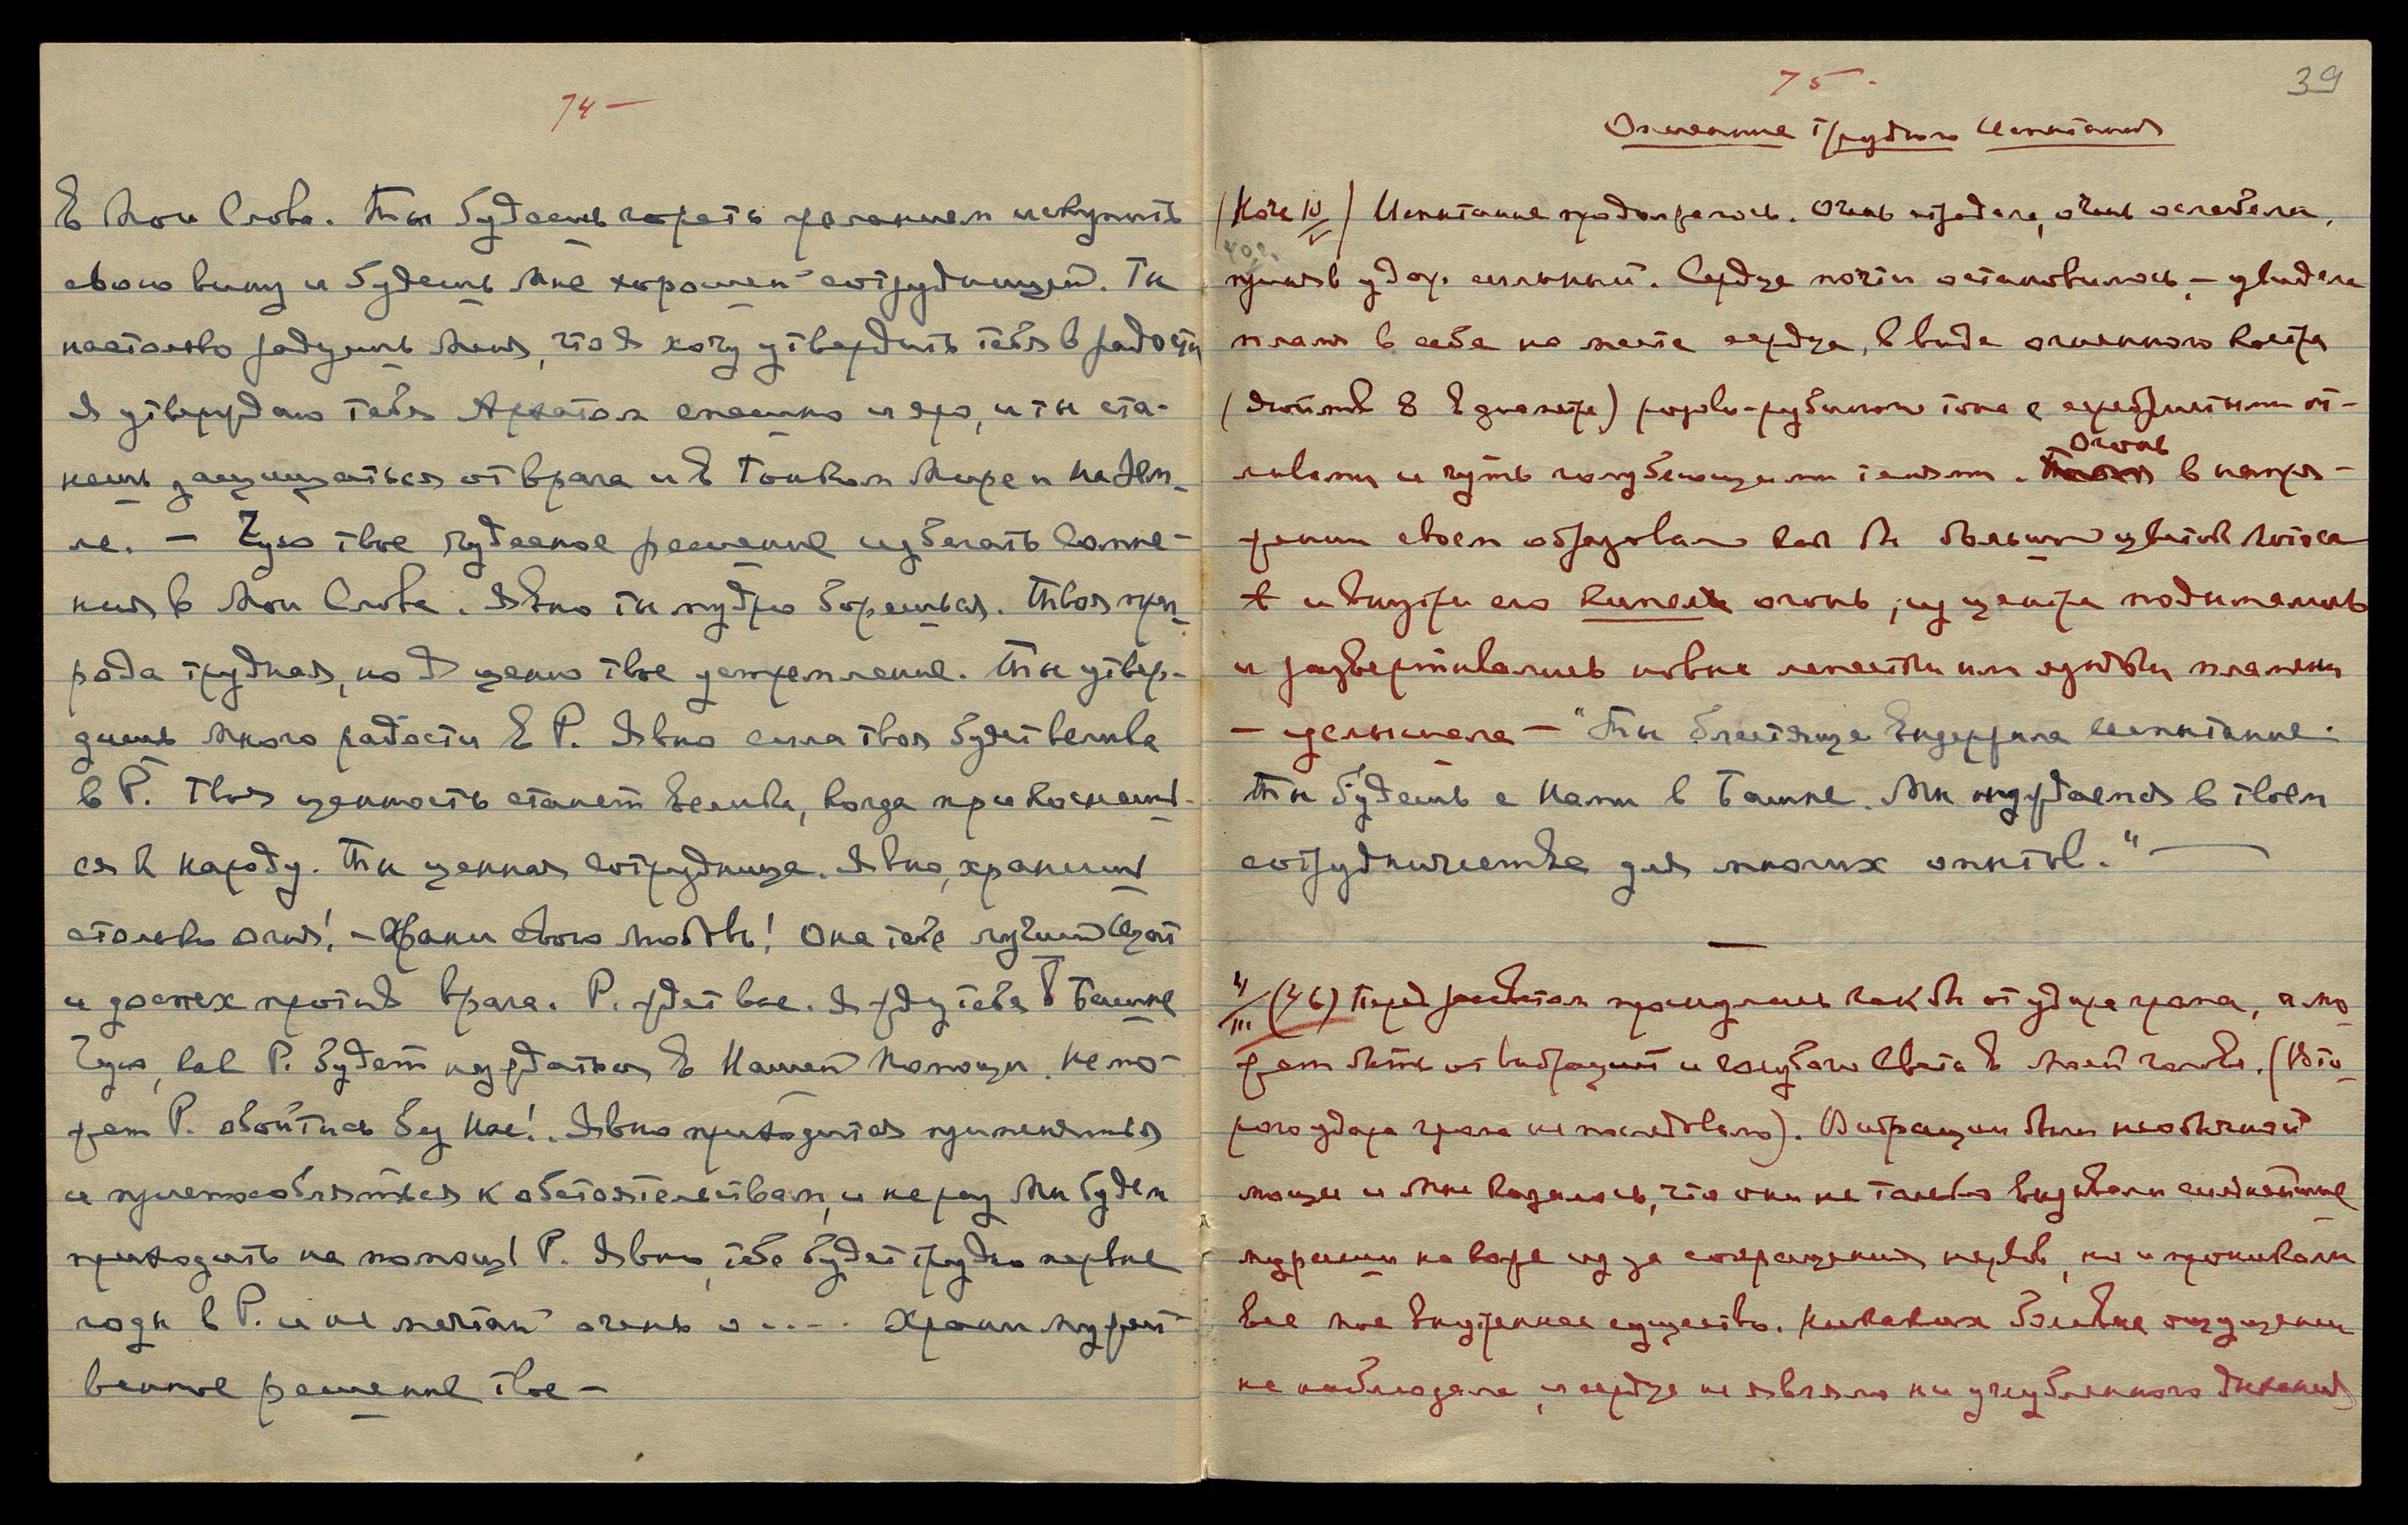 74 —
в Мои Слова. Ты будешь гореть желанием искупить
свою вину и будешь Мне хорошей сотрудницей. Ты
настолько радуешь Меня, что Я хочу утвердить тебя в радости
Я утверждаю тебя Архатом спешно и яро, и ты ста-
нешь защищаться от врага и в Тонком Мире и на Зем-
ле. — Чую твое чудесное решение избегать сомне-
ния в Мои Слова. Явно ты мудро борешься. Твоя при-
рода трудная, но Я ценю твое устремление. Ты утвер-
дишь много радости в Р. Явно сила твоя будет велика
в Р. Твоя ценность станет велика, когда прикоснешь-
ся к народу. Ты ценная сотрудница. Явно, хранишь
столько огня! — Храни свою любовь! Она тебе лучший щит
и доспех против врага. Р. ждет вас. Я жду тебя в Башне
Чую, как Р. будет нуждаться в Нашей Помощи. Не мо-
жет Р. обойтись без Нас!. Явно приходится применяться
и приспособляться к обстоятельствам, и не раз Мы будем
приходить на помощь Р. Явно, тебе будет трудно первые
годы в Р. и не мечтай очень о .... Храни мужест-
венное решение твое —
75.
39
Огненное трудное Испытание
(Ночь IV/V) Испытание продолжалось. Очень страдала, очень ослабела,
приняв удар сильный. Сердце почти остановилось, — увидела
пламя в себе на месте сердца, в виде огненного костра
(дюймов 8 в диаметре) розово-рубинового тона с серебристыми от-
ливами и чуть голубеющими тенями. Огонь в напря-
жении своем образовал как бы большой цветок лотоса
и внутри его кипел огонь, из центра поднимались
и развертывались новые лепестки или язычки пламени
— услышала — "Ты блестяще выдержала испытание.
Ты будешь с Нами в Башне. Мы нуждаемся в твоем
сотрудничестве для многих опытов." —
4/III (46) Перед рассветом проснулась как бы от удара грома, а мо-
жет быть от вибраций и голубого Света в моей голове. (Вто-
рого удара грома не последовало). Вибрации были необычной
мощи и мне казалось, что они не только вызывали сильнейшие
мурашки на коже из за сокращения нервов, но и проникали
все мое внутреннее существо. Никаких болевых ощущений
не наблюдала, и сердце не являло ни углубленного дыхания